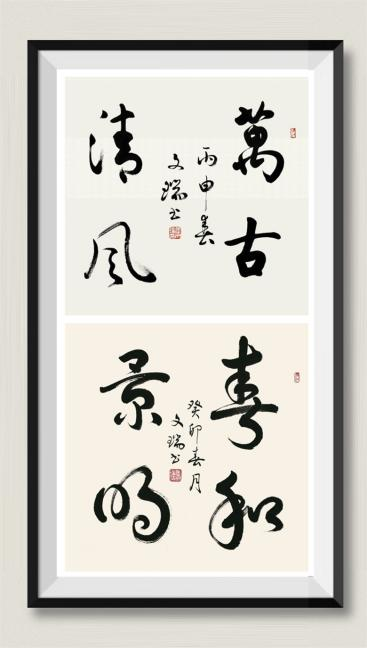 萬古
清風
丙申春
文瑞书
春和
景明
癸卯春月
文瑞书